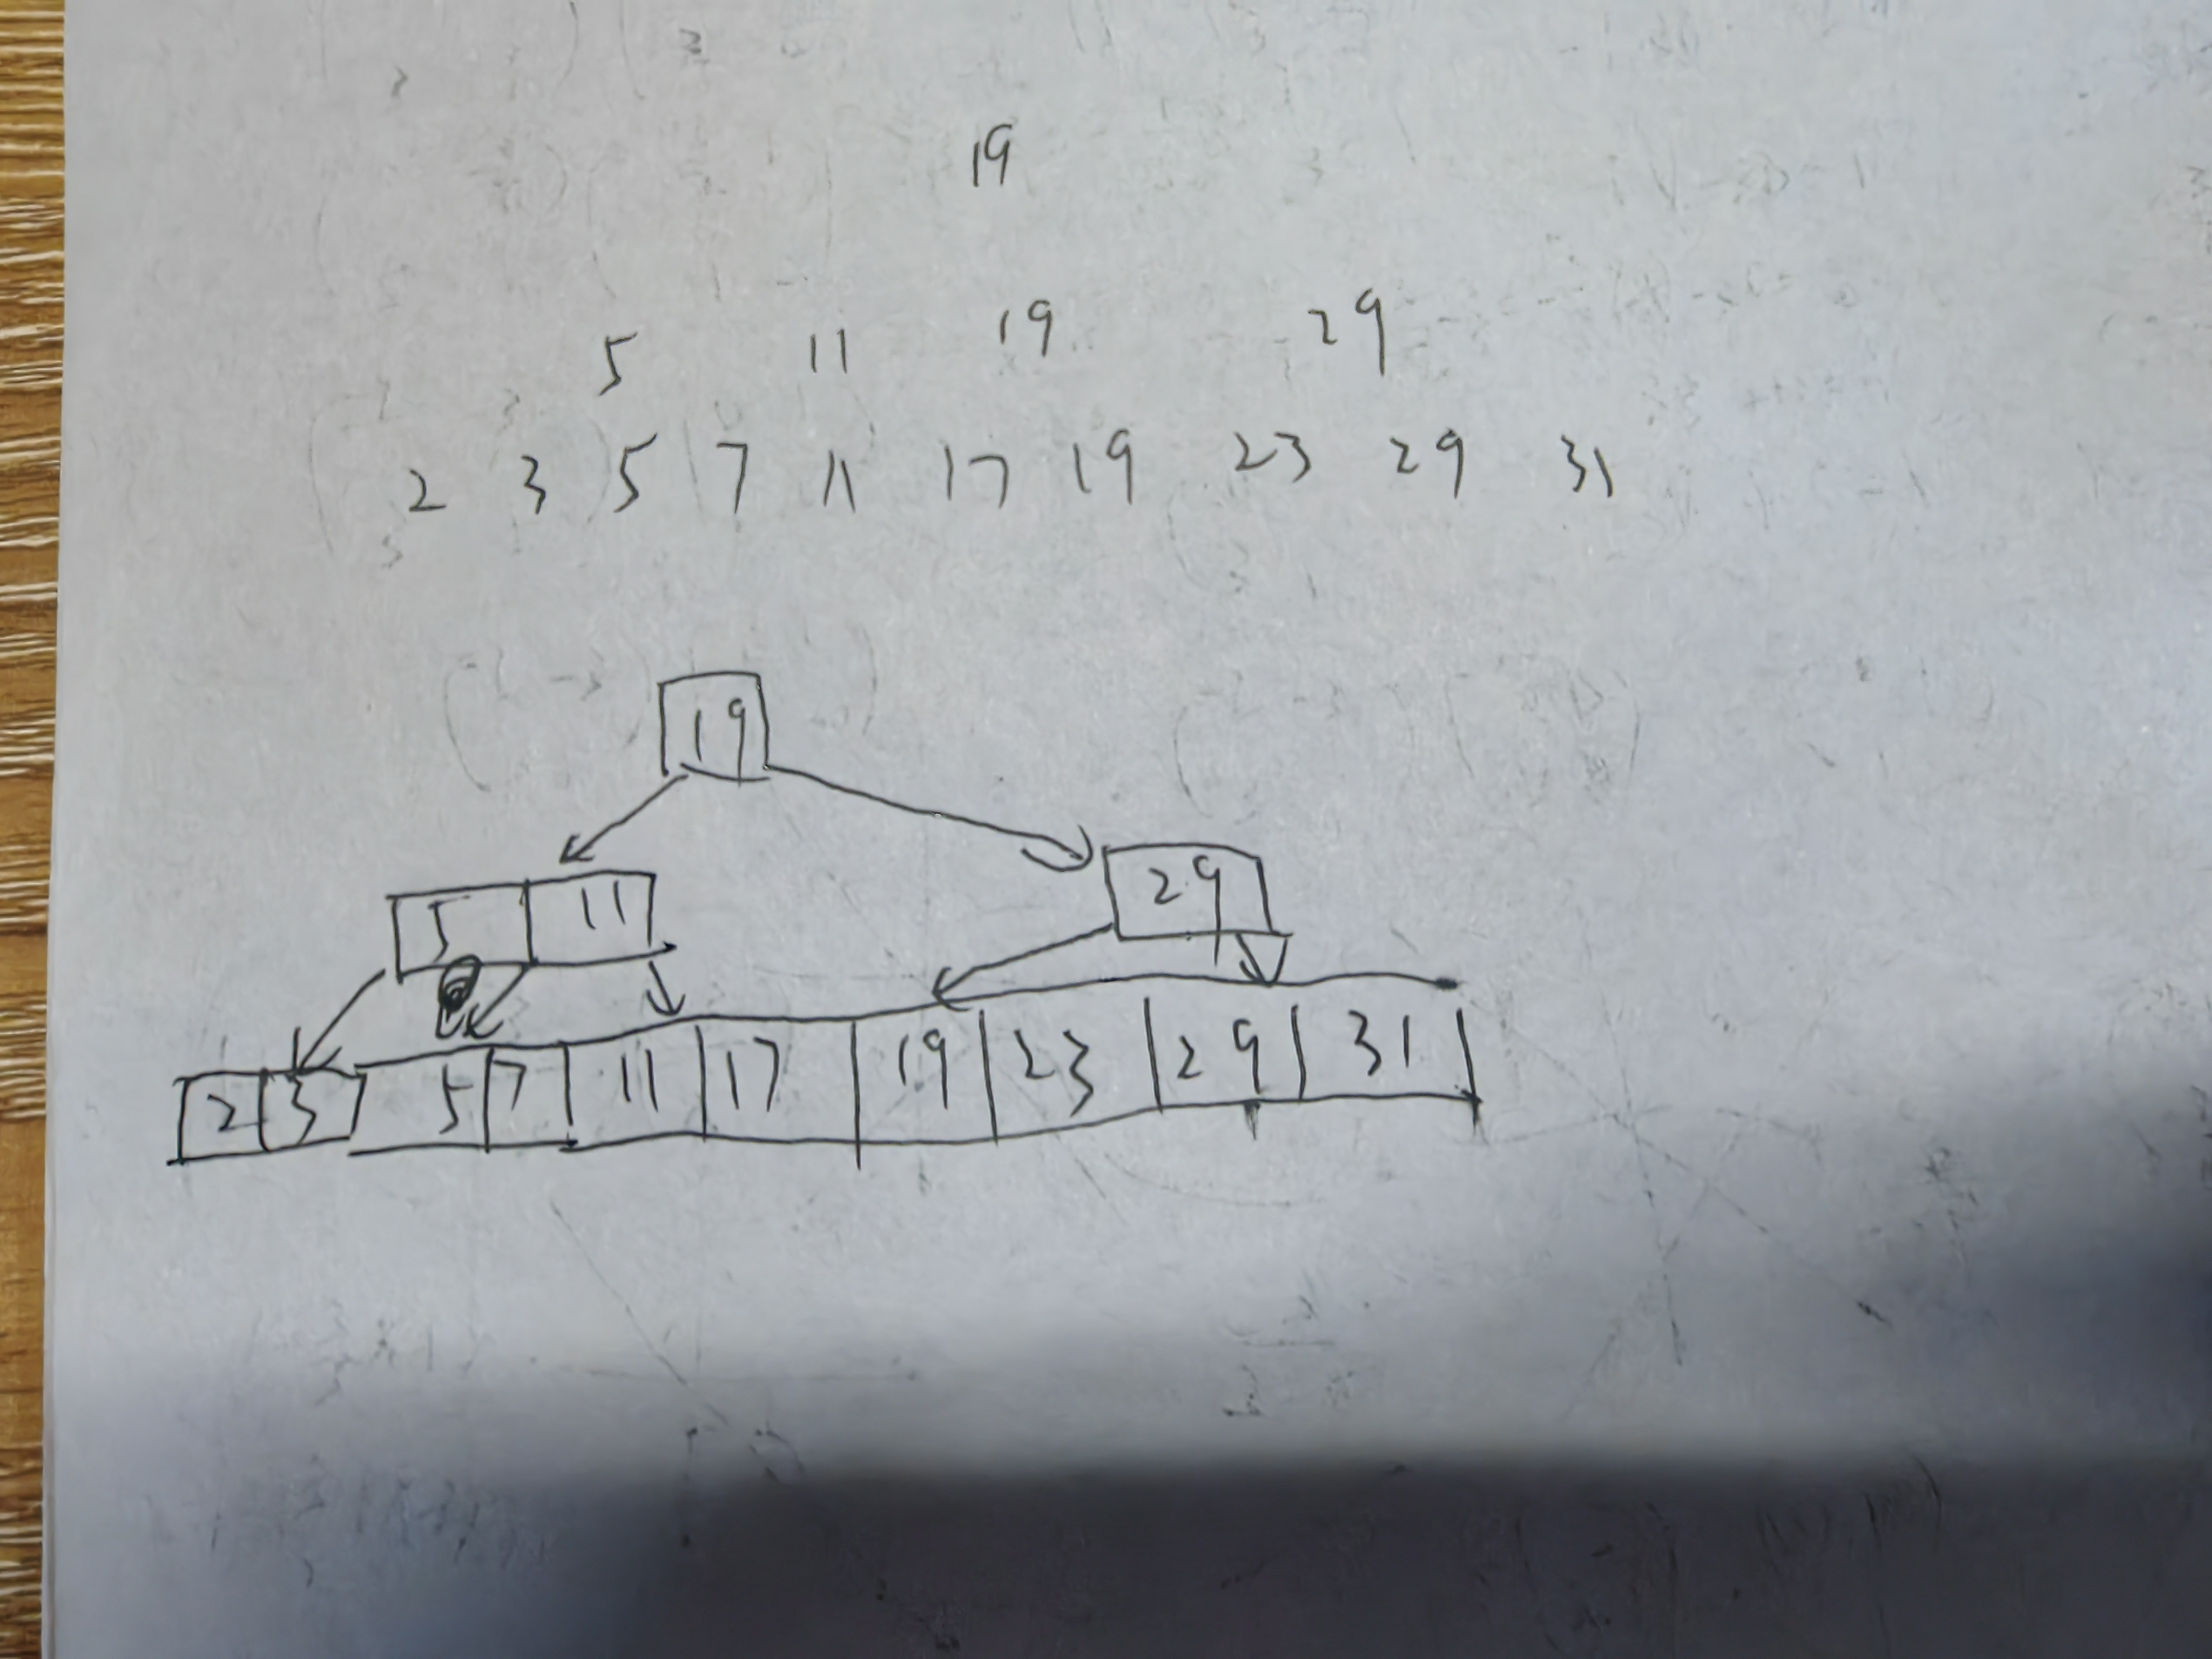 19
5 11 19 29
2 3 5 7 11 17 19 23 29 31
19
5 11 29
2 3 5 7 11 17 19 23 29 31